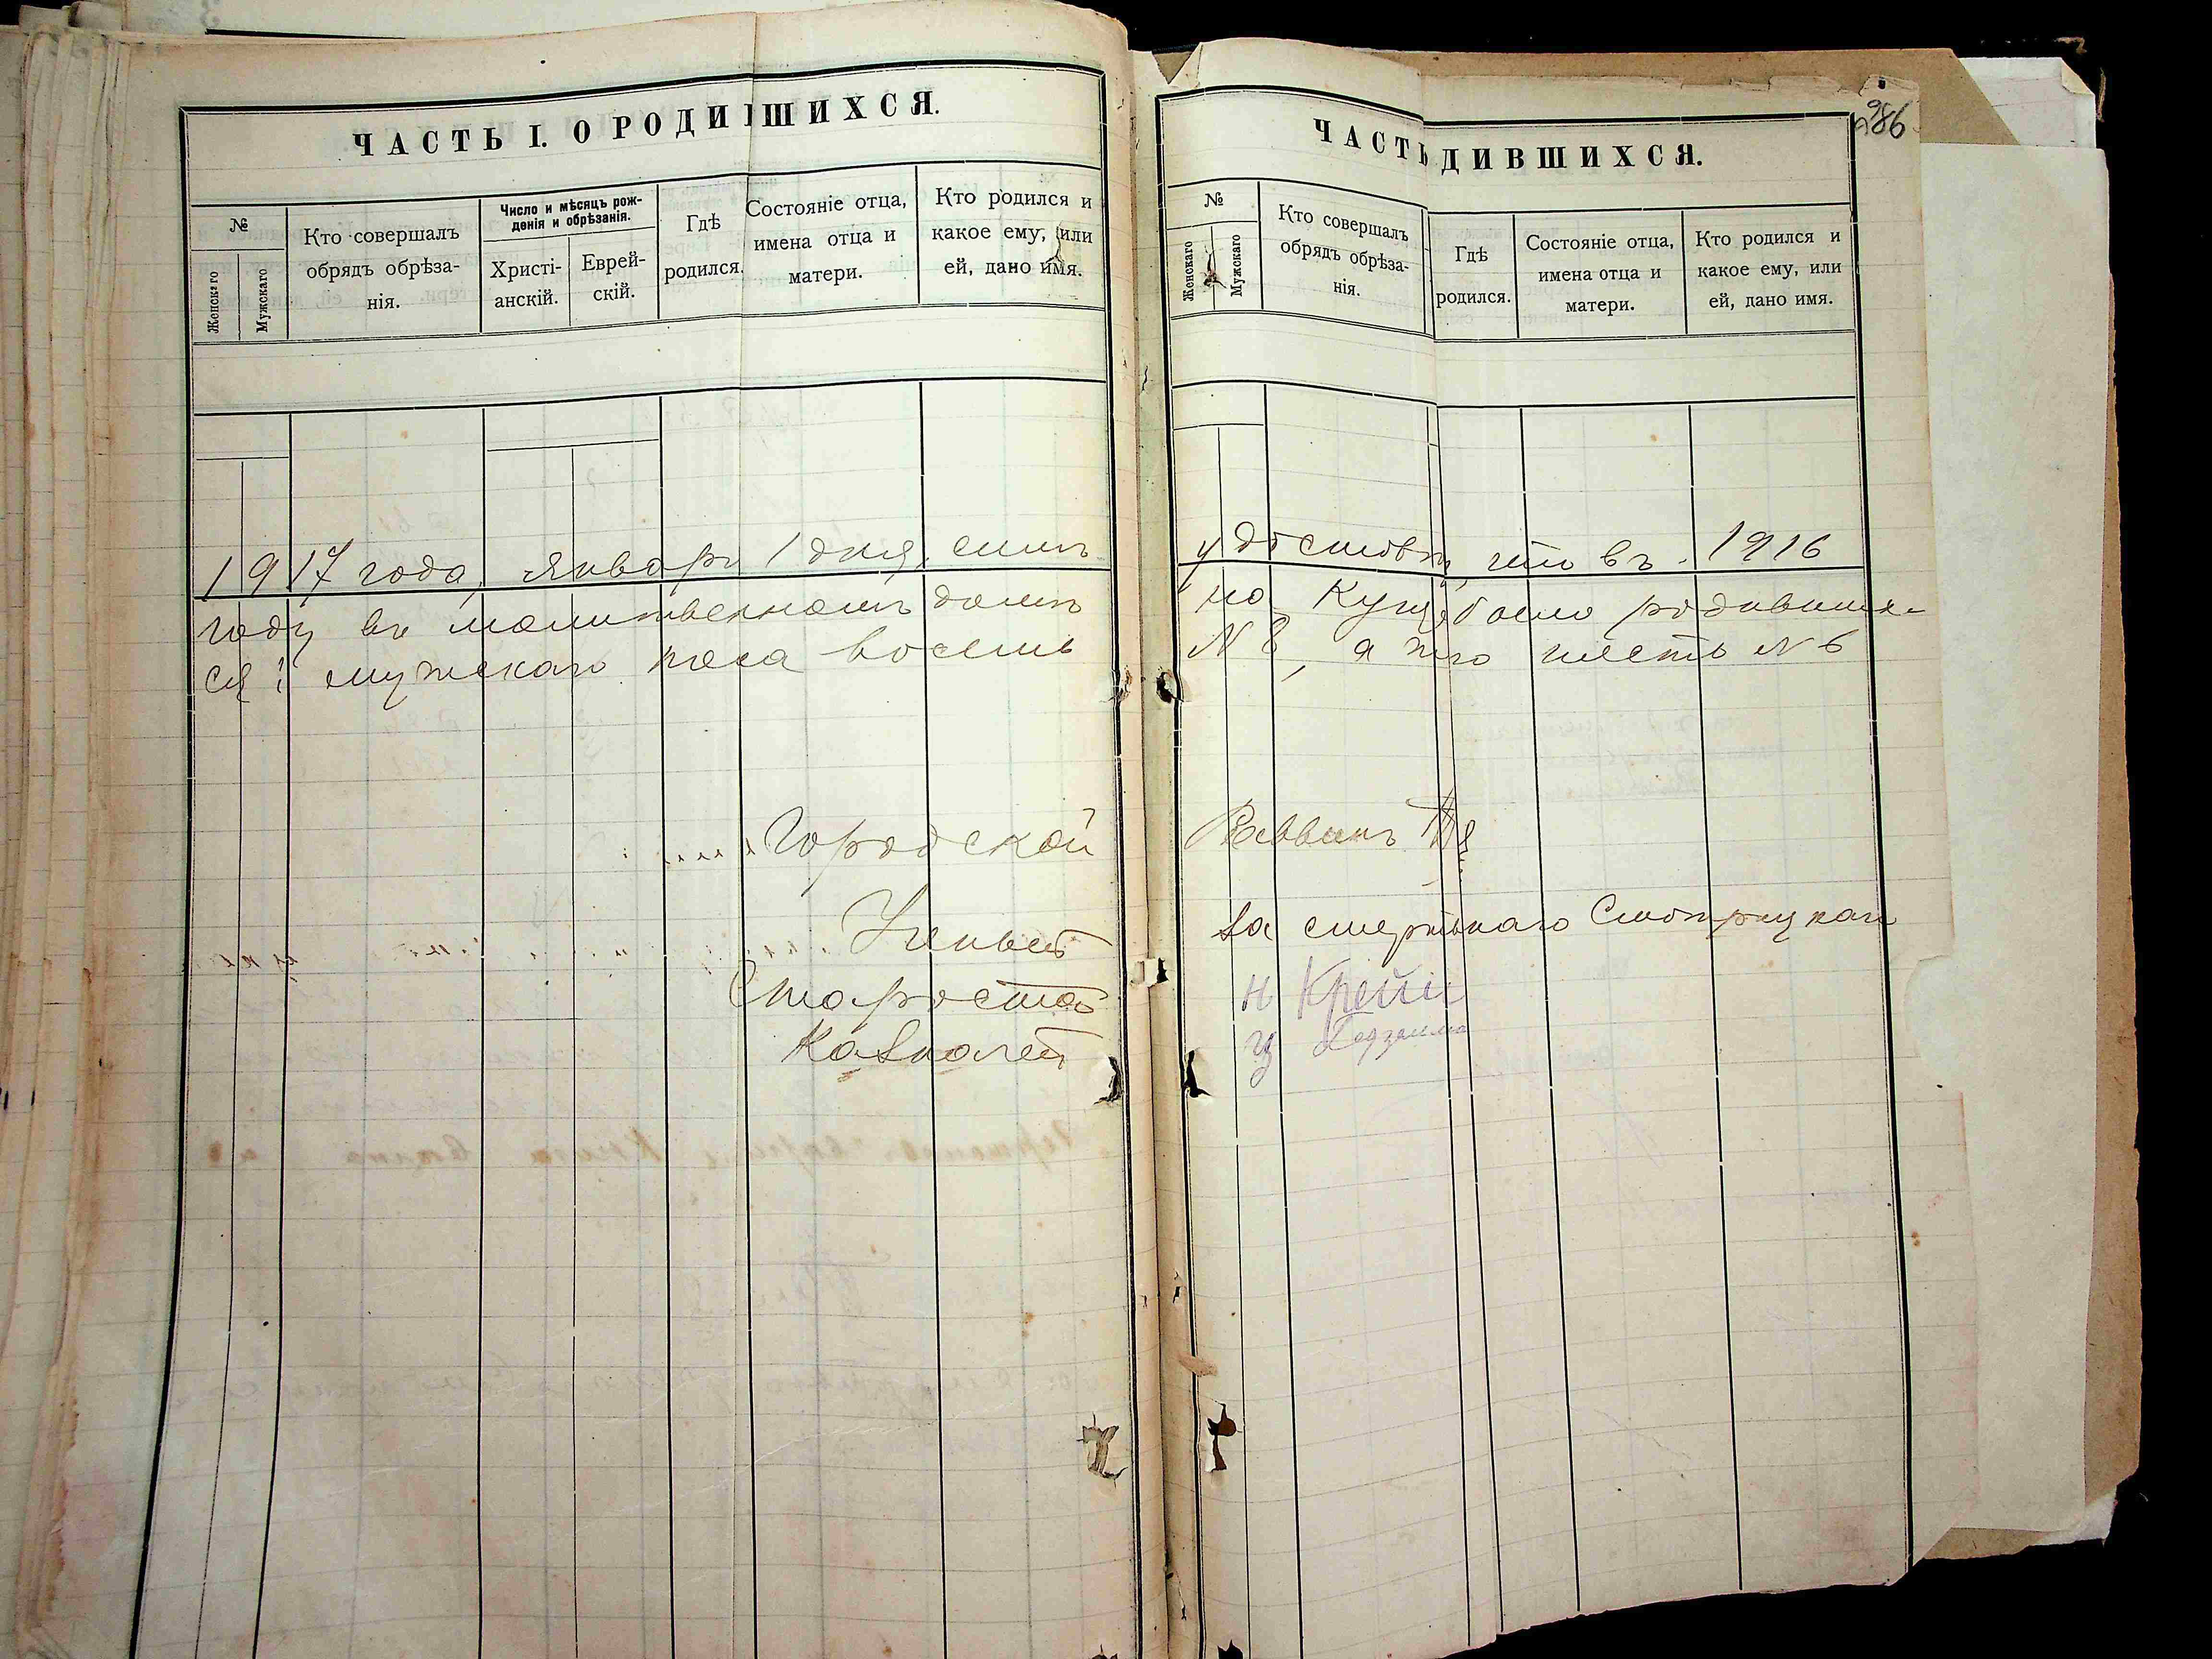 ЧАСТЬ I. О РОДИВШИХСЯ.
№
Женскаго
Мужскаго
Кто совершалъ
обрядъ обрѣза-
нія.
Число и мѣсяцъ рож-
денія и обрѣзанія.
Христі-
анскій.
Еврей-
скій.
Гдѣ
родился.
Состояніе отца,
имена отца и
матери.
Кто родился и
какое ему, или
ей, дано имя.
1917 года, Января 1 дня, симъ
году въ молитвенномъ домѣ
ся: мужскаго пола восемь
Городской
Ученый
Староста
Казначей
986
ЧАСТЬ ДИВШИХСЯ.
№
Женскаго
Мужскаго
Кто совершалъ
обрядъ обрѣза-
нія.
Гдѣ
родился.
Состояніе отца,
имена отца и
матери.
Кто родился и
какое ему, или
ей, дано имя.
удостовѣ что въ 1916
по было родивших-
N 8, а го шесть N 6
Раввинъ
За смертью
Н Крейн